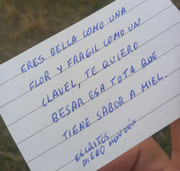 ERES BELLA COMO UNA
FLOR Y FRAGIL COMO UN
CLAVEL, TE QUIERO
BESAR ESA TOTA QUE
TIENE SABOR A MIEL.
ESCRITOS
DIEGO